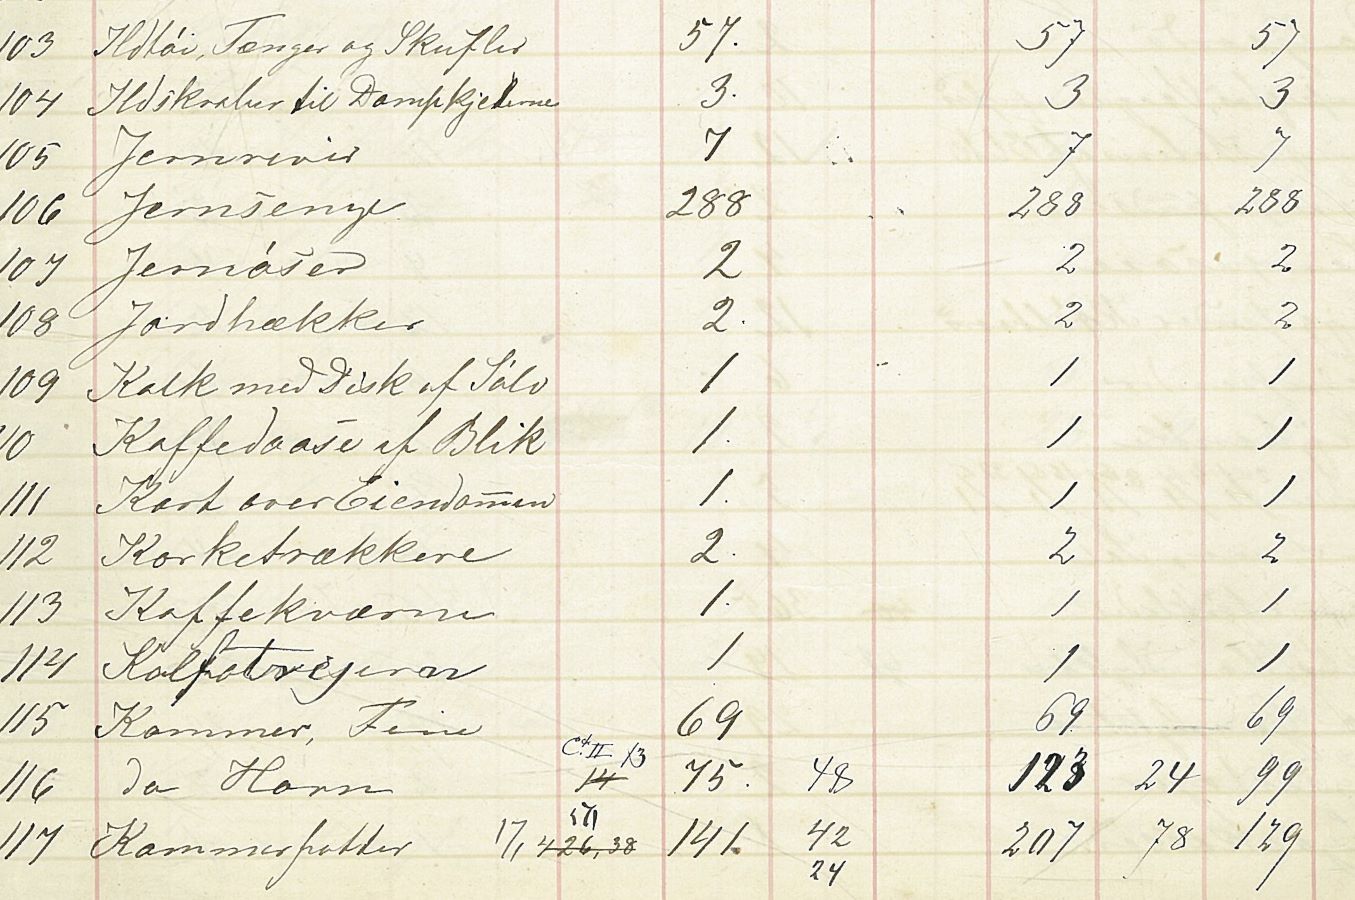 103 Ildtöi, Tænger og Skufler 57. 57 57
104 Ildskraber til Dampkjelerne 3. 3 3
105 Jernrever 7 7 7
106 Jernsenge 288 288 288
107 Jernöser 2 2 2
108 Jordhakker 2. 2 2
109 Kalk med Disk af Sölv 1 1 1
10 Kaffedaase af Blik 1. 1 1
111 Kart over Eiendommen 1. 1 1
112 Korketrækkere 2. 2 2
113 Kaffekværne 1. 1 1
114 1 1 1
115 Kammer, Fine 69 69 69
Ct. II 13
116 do Horn 14 75. 48 123 24 99
117 Kammerpotter 17, 426, 38 141. 42 207 78 129
24